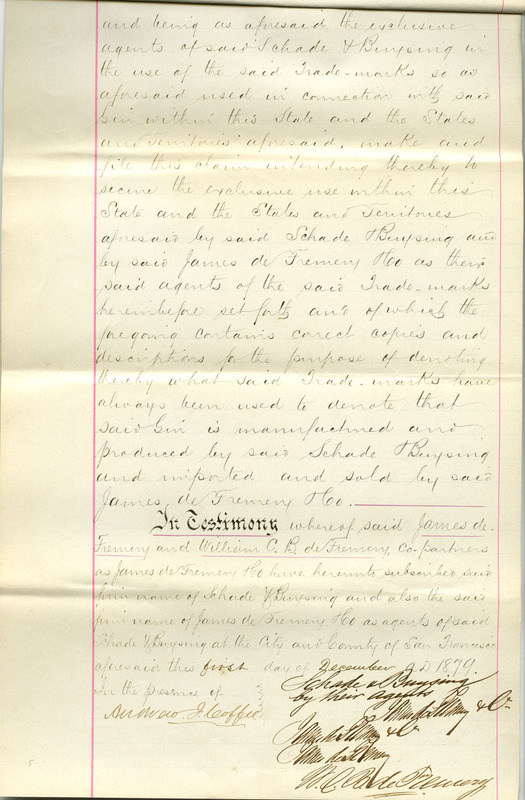 and being as aforesaid the exclusive
agents of said Schade & Buysing in
the use of the said Trade-marks so as
aforesaid used in connection with said
Gin within this State and the States
and Territories aforesaid, make and
file this claim intending thereby to
secure the exclusive use within this
State and the States and Territories
aforesaid by said Schade & Buysing and
by said James de Fremery & Co as their
said agents of the said Trade-marks
hereinbefore set forth and of which the
foregoing contains correct copies and
descriptions for the purpose of denoting
thereby what said Trade-marks have
always been used to denote that
said Gin is manufactured and
produced by said Schade & Buysing
and imported and sold by said
James de Fremery & Co.
In Testimony whereof said James de
Fremery and William C. B. de Fremery, co-partners
as James de Fremery & Co have hereunto subscribed said
firm name of Schade & Buysing and also the said
firm name of James de Fremery & Co as agents of said
Schade & Buysing at the City and County of San Francisco
aforesaid this first day of December A.D 1879.
In the presence of
Schade & Buysing
by their agents
James de Fremery & Co
Andrew J. Coffee
James de Fremery & Co
James de Fremery
W. C. B. de Fremery
5